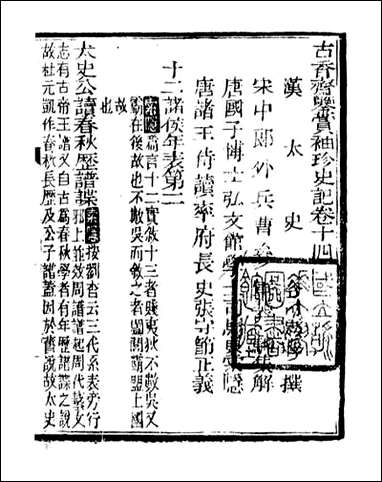 古香齋鑒賞袖珍史記卷十四
漢太史
撰
宋中郎外兵曹參
集解
唐國子博士弘文館學士司馬
索隱
唐諸王侍讀率府長史張守節正義
十二諸侯年表第二
索隱 篇言十二實敘十三者賤夷狄不數吳又
霸在後故也不數吳而敘之者闔閭霸盟上國
故也
太史公讀春秋歷譜諜
索隱 按劉杳云三代系表旁行
邪上並效周譜譜起周代藝文
志有古帝王譜又自古爲春秋學者有年歷譜諜之說
故杜元凱作春秋長歷及公子譜蓋因於舊說故太史